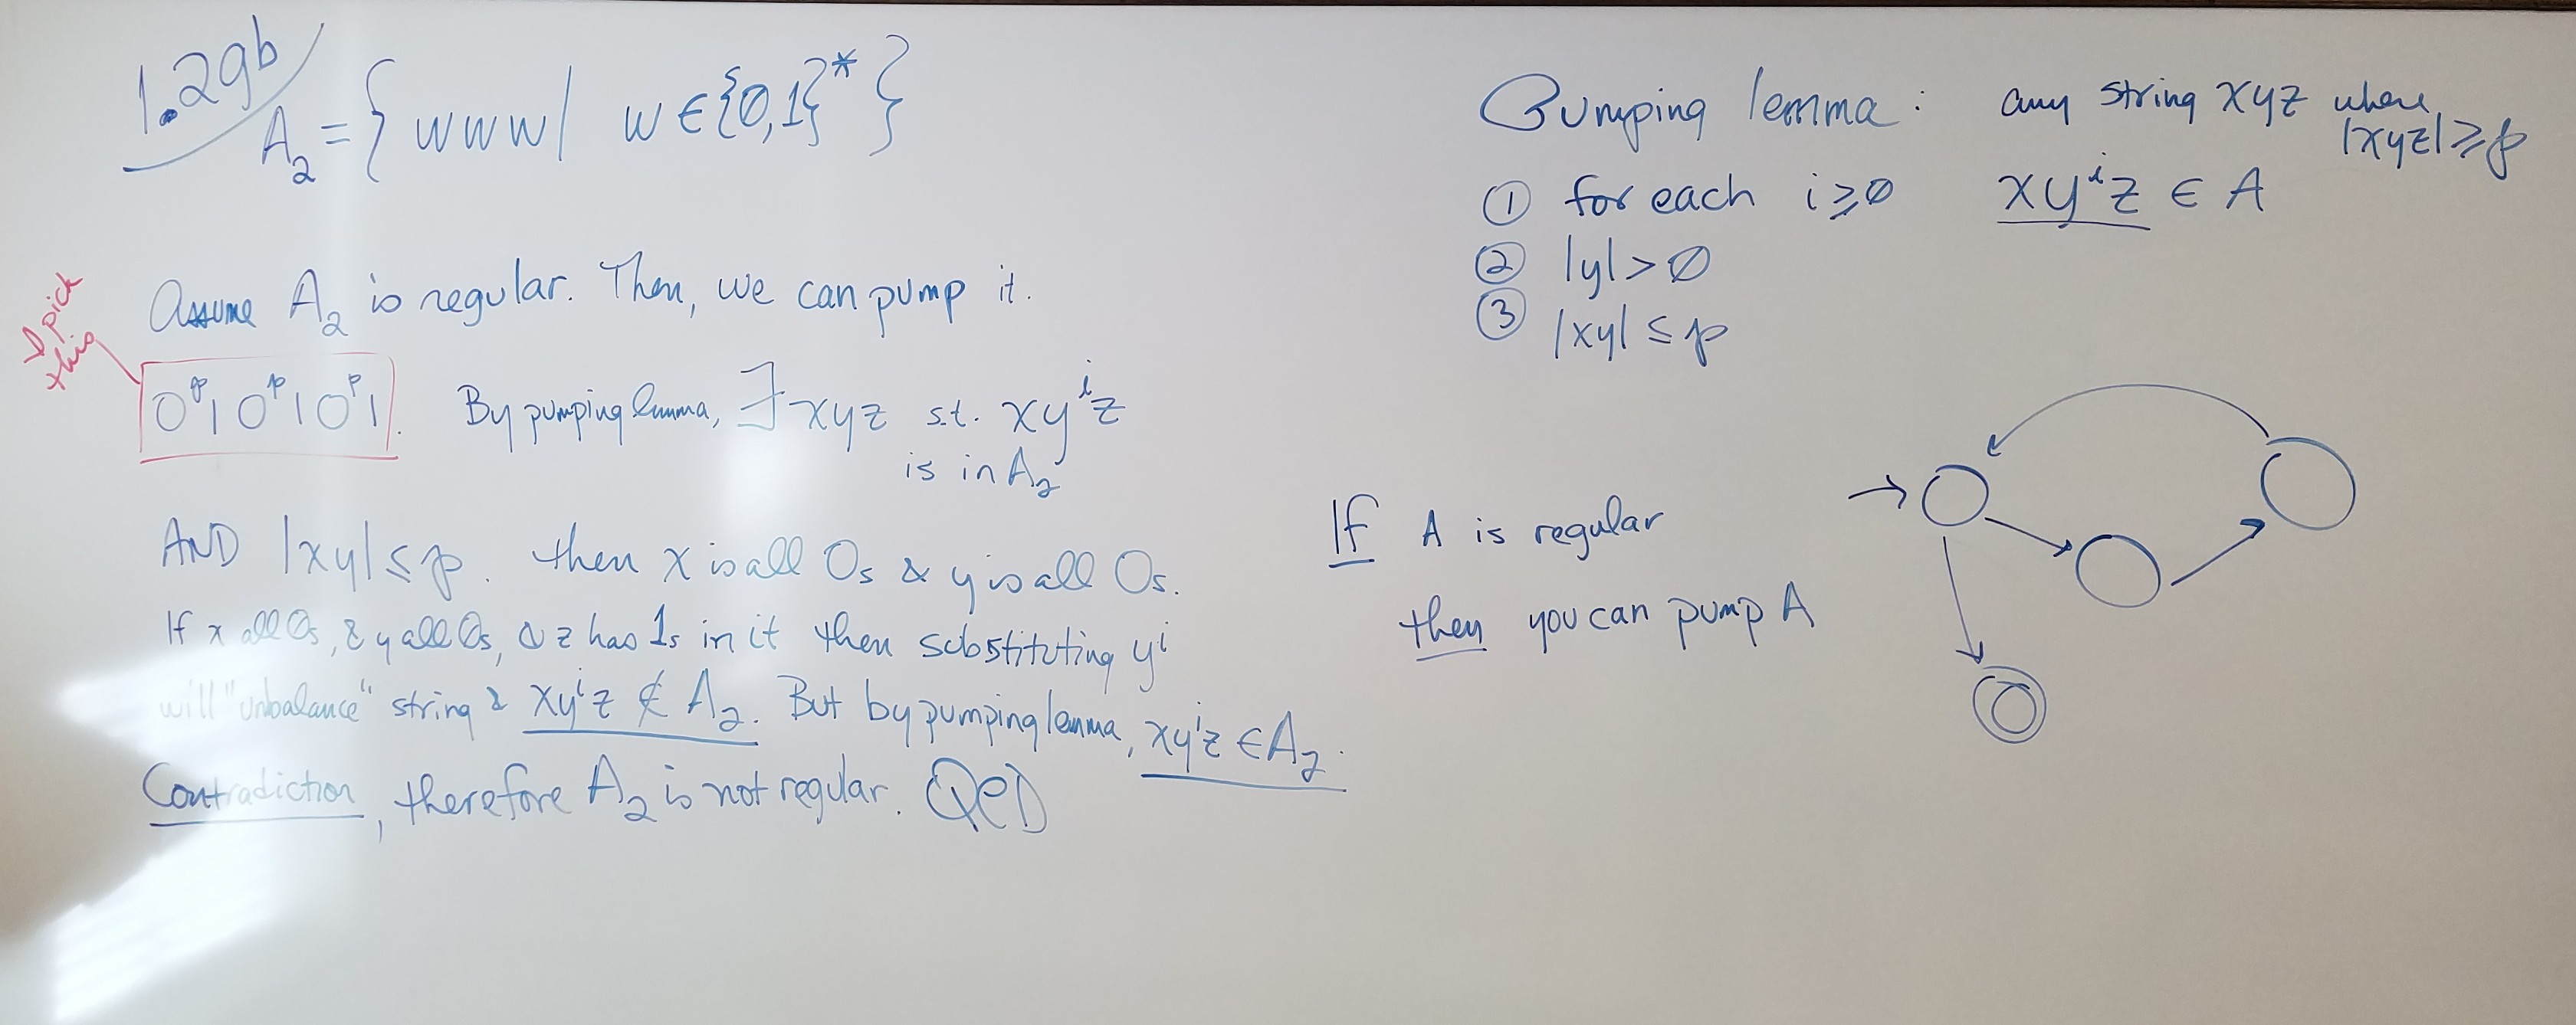 1.29b
A₂ = { www | w ∈ {0,1}* }
Assume A₂ is regular. Then, we can pump it.
I pick
this
0ᵖ10ᵖ10ᵖ1. By pumping lemma, ∃ xyz s.t. xyⁱz
is in A₂
AND |xy| ≤ p. then x is all 0s & y is all 0s.
If x all 0s, & y all 0s, & z has 1s in it then substituting yⁱ
will "unbalance" string & xyⁱz ∉ A₂. But by pumping lemma, xyⁱz ∈ A₂.
Contradiction, therefore A₂ is not regular. QED
Pumping lemma: any string xyz where
|xyz| ≥ p
① for each i ≥ 0 xyⁱz ∈ A
② |y| > 0
③ |xy| ≤ p
If A is regular
then you can pump A